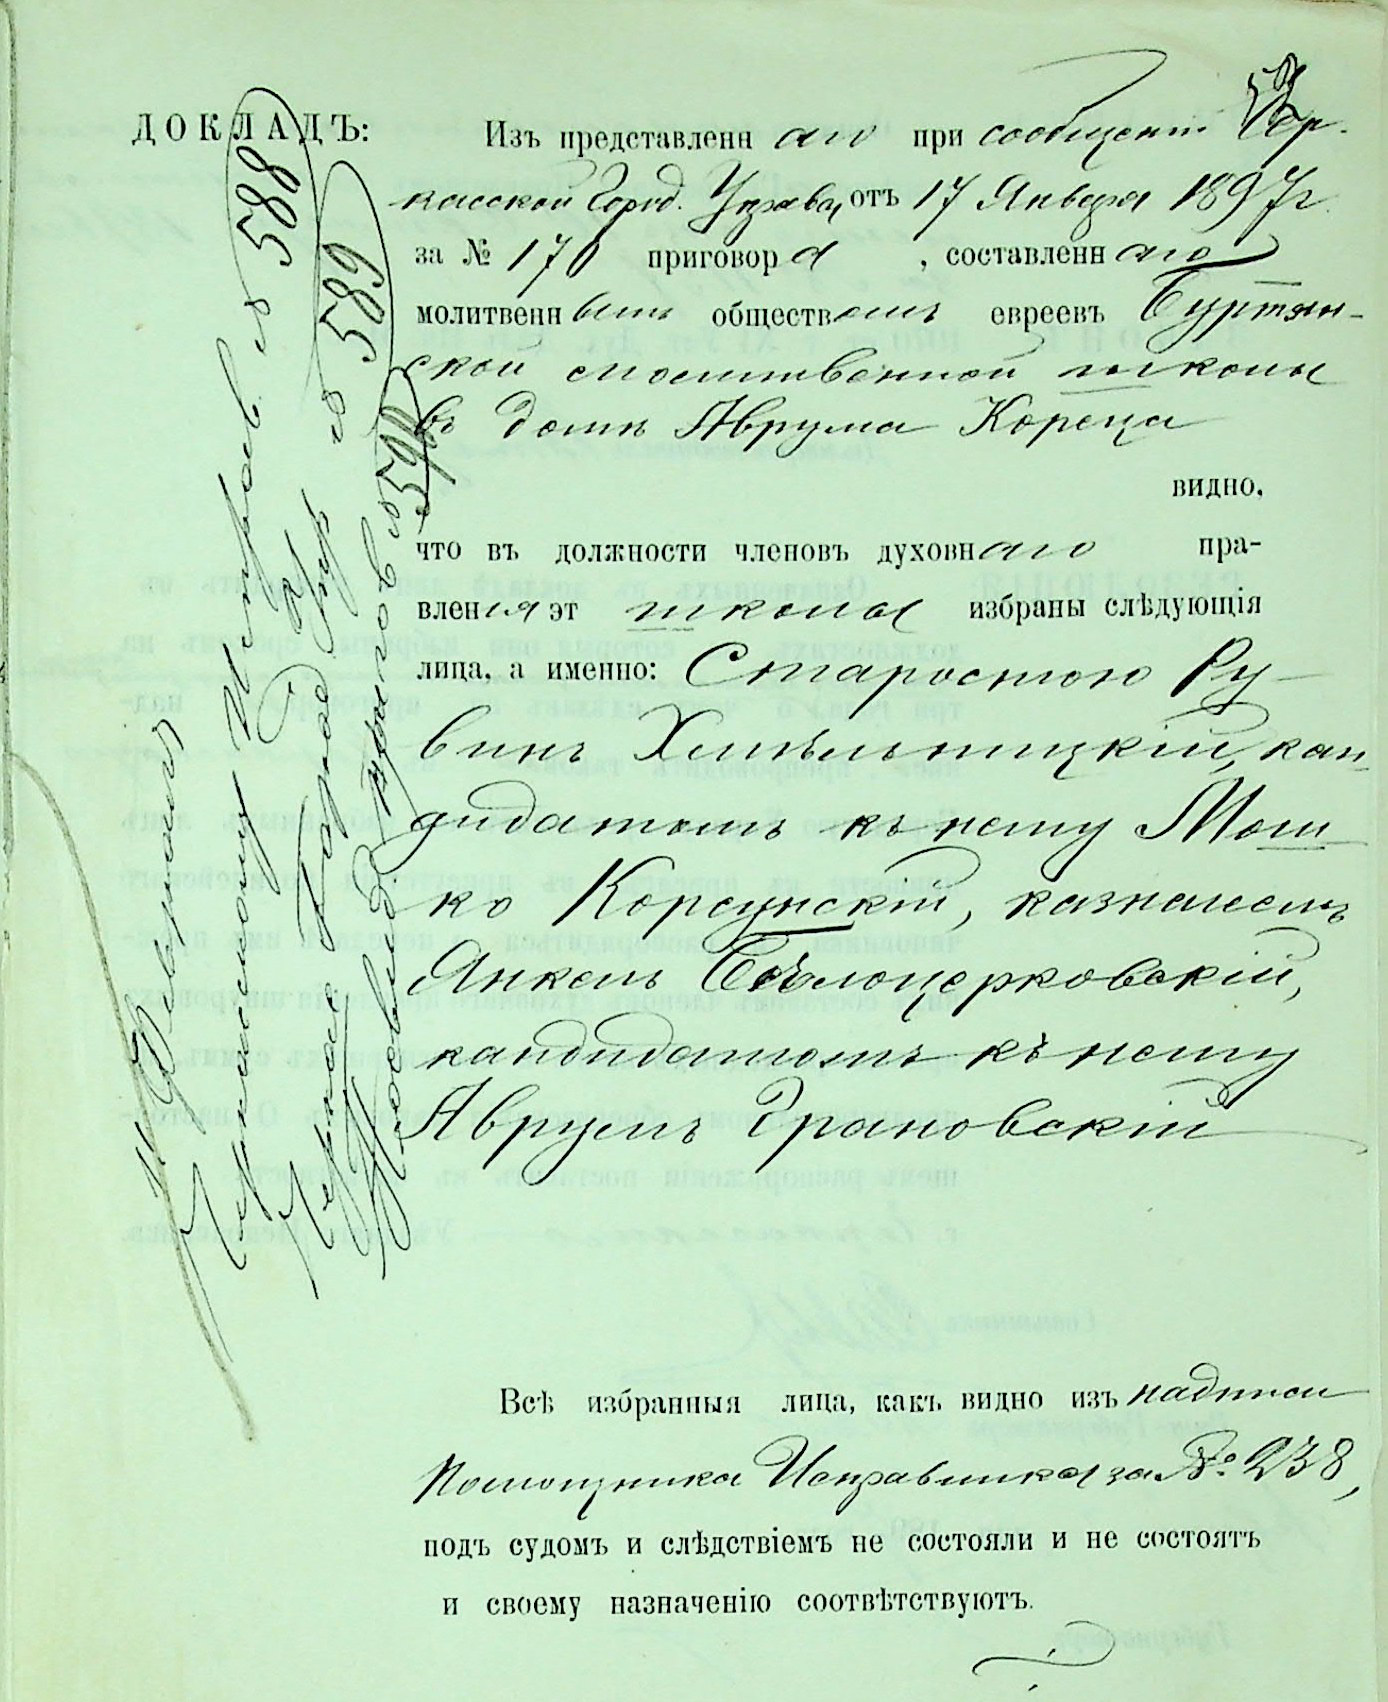 ДОКЛАДЪ:
Изъ представленнаго при сообщеніи Чер-
касской Город. Управы отъ 17 Января 1897 г.
за № 170 приговора, составленнаго
молитвеннымъ обществомъ евреевъ Буртян-
ской молитвенной школы
въ домѣ Аврума Кореца
видно,
что въ должности членовъ духовнаго пра-
вленія эт школы избраны слѣдующія
лица, а именно: Старостою Ру-
винъ Хмѣльницкій, кан-
дидатомъ къ нему Мош-
ко Корсунскій, казначеемъ
Янкель Бѣлоцерковскій,
кандидатомъ къ нему
Аврумъ Грановскій
Всѣ избранныя лица, какъ видно изъ надписи
Помощника Исправника за № 238,
подъ судомъ и слѣдствіемъ не состояли и не состоятъ
и своему назначенію соотвѣтствуютъ.
Февраля
Черкасскому Исправ. № 588
Черкас Город Упр № 589
пригов № 590